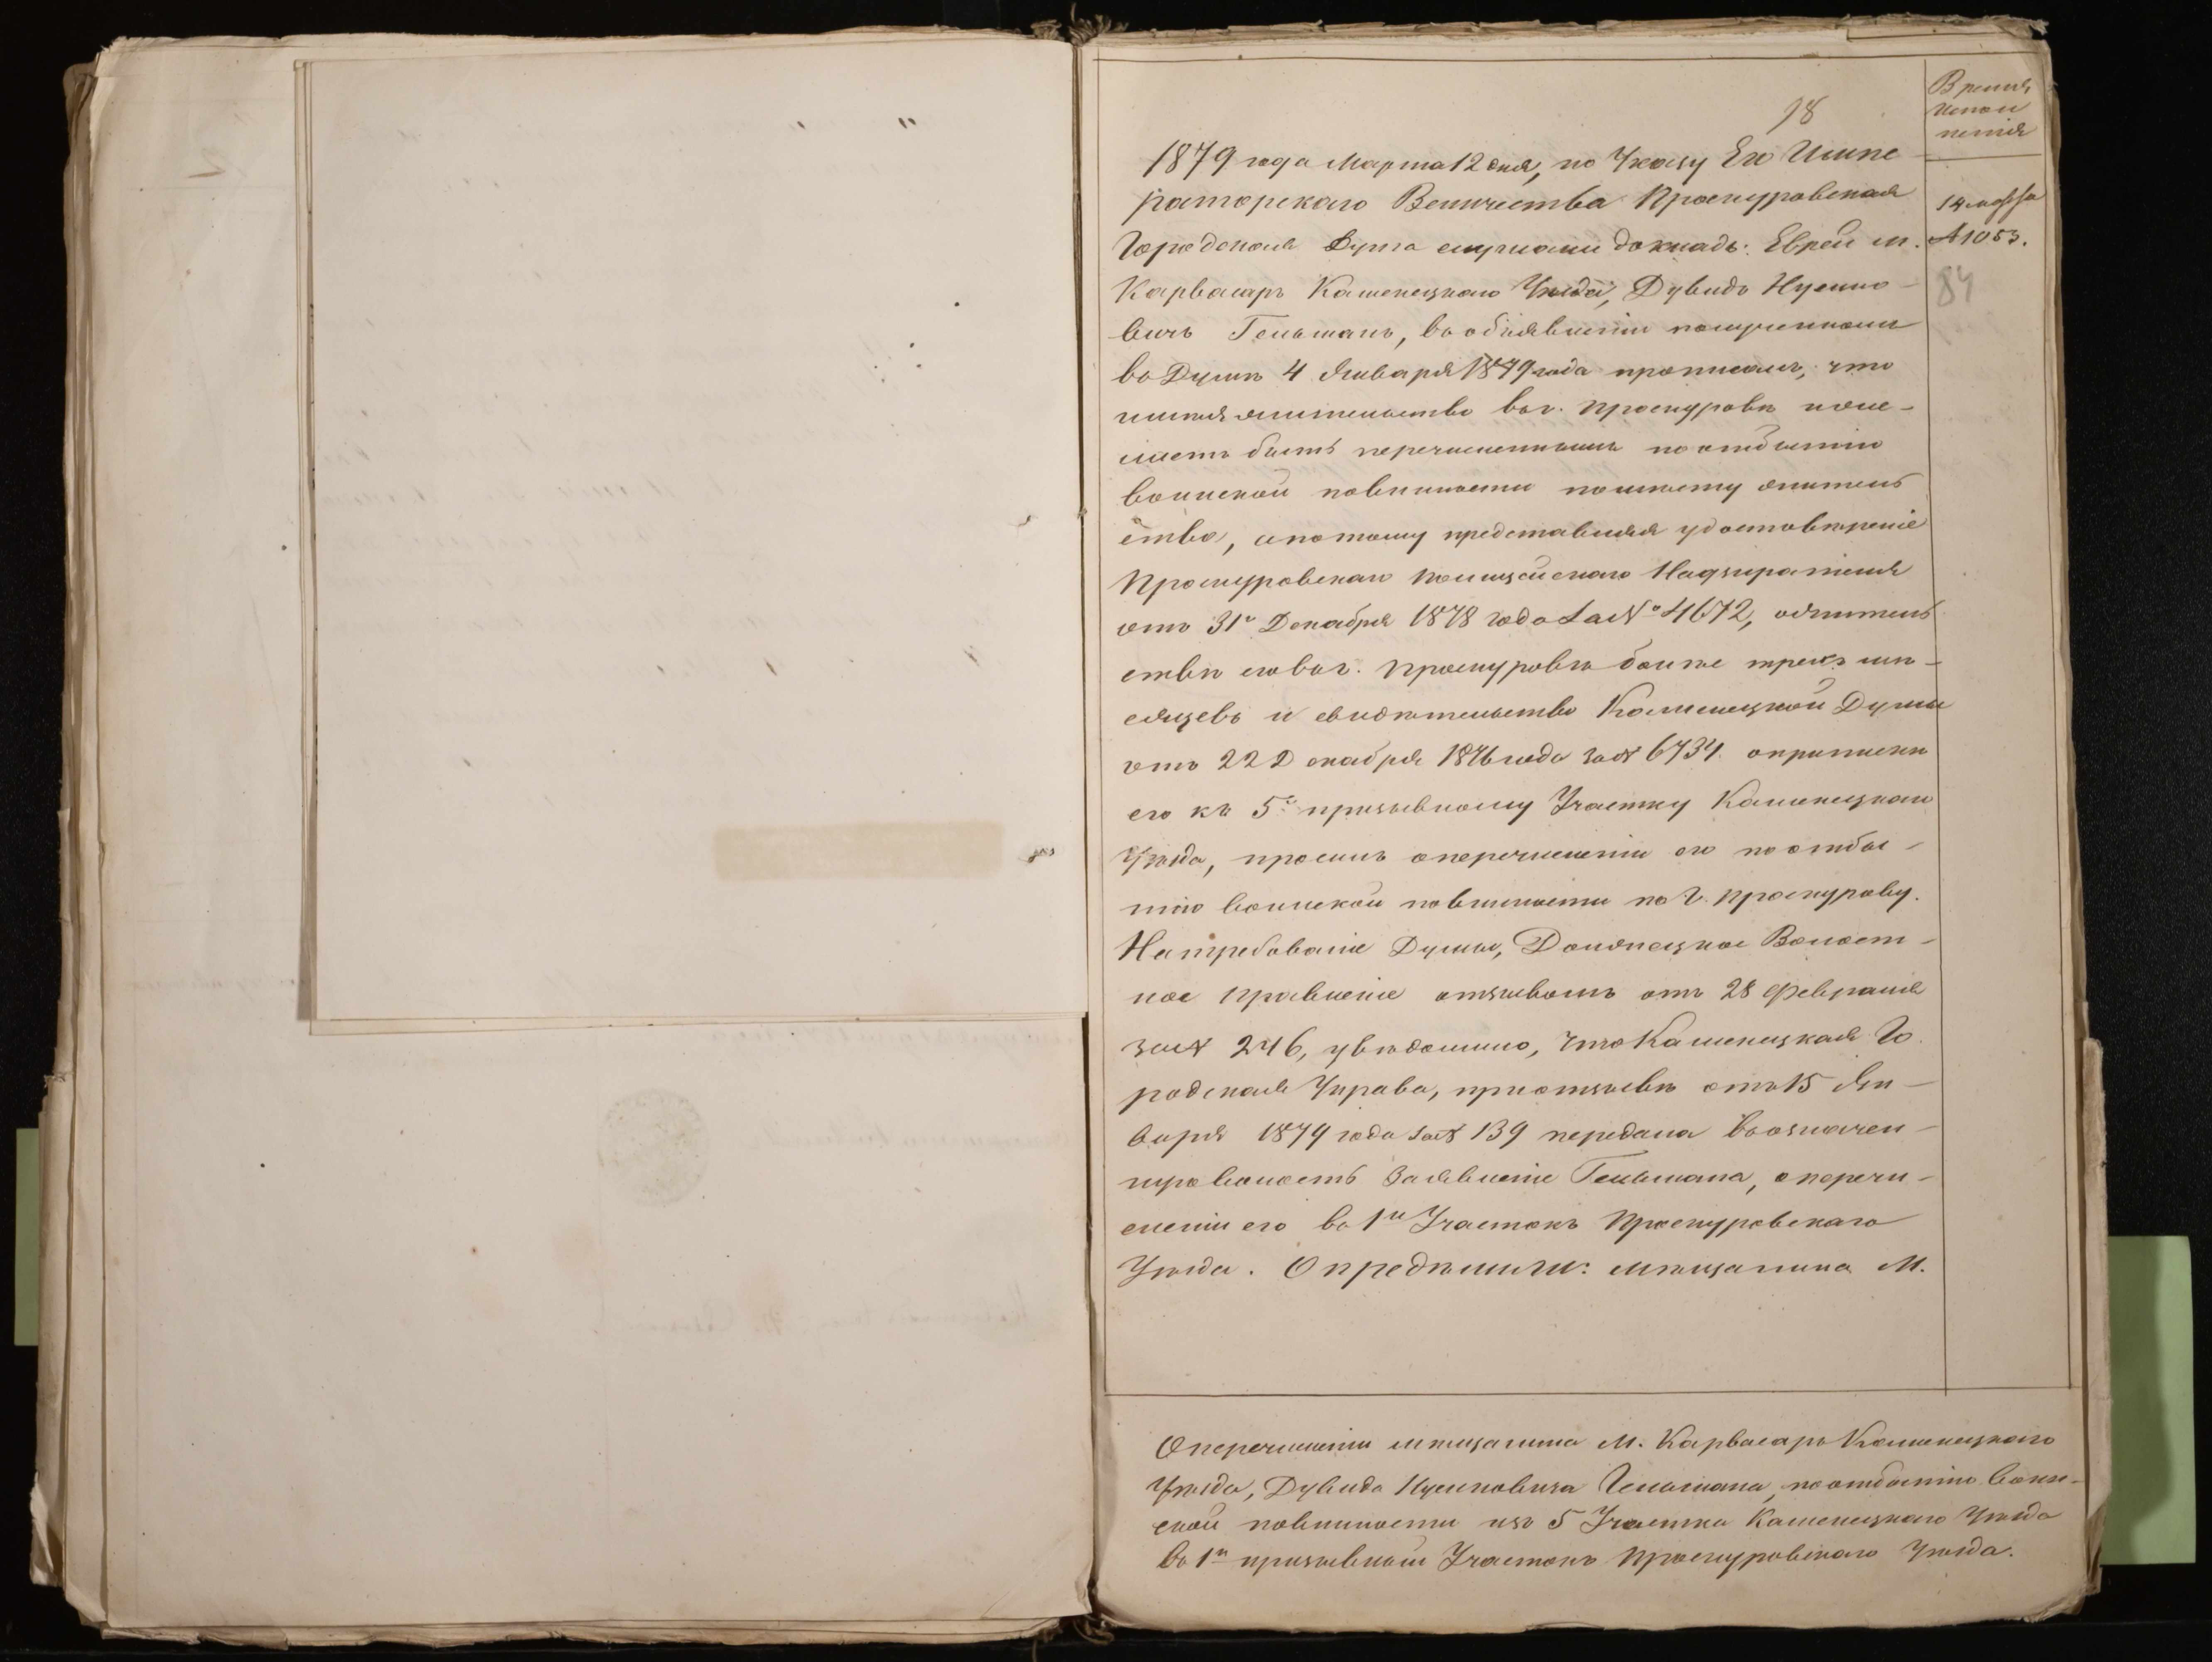 98
Время
испол
ненія
1879 года Марта 12 дня, по Указу Его Импе
раторскаго Величества Проскуровская
Городская Дума слушали докладъ: Еврей м.
Карвасаръ Каменецкаго Уѣзда, Дувидъ Нусимо-
вичъ Гельманъ, въ объявленіи полученномъ
въ Думѣ 4 Января 1879 года прописалъ, что
имѣя жительство въ г. Проскуровѣ поже-
лаетъ быть перечисленнымъ по отбытію
воинской повинности по сему житель
ству, и потому представляя удостовѣреніе
Проскуровскаго Полицейскаго Надзирателя
отъ 31го Декабря 1878 года за № 4672, о житель
ствѣ его въ г. Проскуровѣ болѣе трехъ мѣ-
сяцевъ и свидѣтельство Каменецкой Думы
отъ 22 Декабря 1876 года за № 6734 о припискѣ
его къ 5му призывному Участку Каменецкаго
Уѣзда, просилъ о перечисленіи его по отбы-
тію воинской повинности по г. Проскурову.
На требованіе Думы, Должецкое Волост-
ное Правленіе отзывомъ отъ 28 Февраля
за № 246, увѣдомило, что Каменецкая Го
родская Управа, при отзывѣ отъ 15 Ян-
варя 1879 года за № 139 передала въ означен-
ную волость Заявленіе Гельмана, о перечи-
сленіи его въ 1й Участокъ Проскуровскаго
Уѣзда. Опредѣлили: мѣщанина М.
14 марта
№ 1053.
84
О перечисленіи мѣщанина М. Карвасаръ Каменецкаго
Уѣзда, Дувида Нусиновича Гельмана, по отбытію воин-
ской повинности изъ 5 Участка Каменецкаго Уѣзда
въ 1й призывной Участокъ Проскуровскаго Уѣзда.